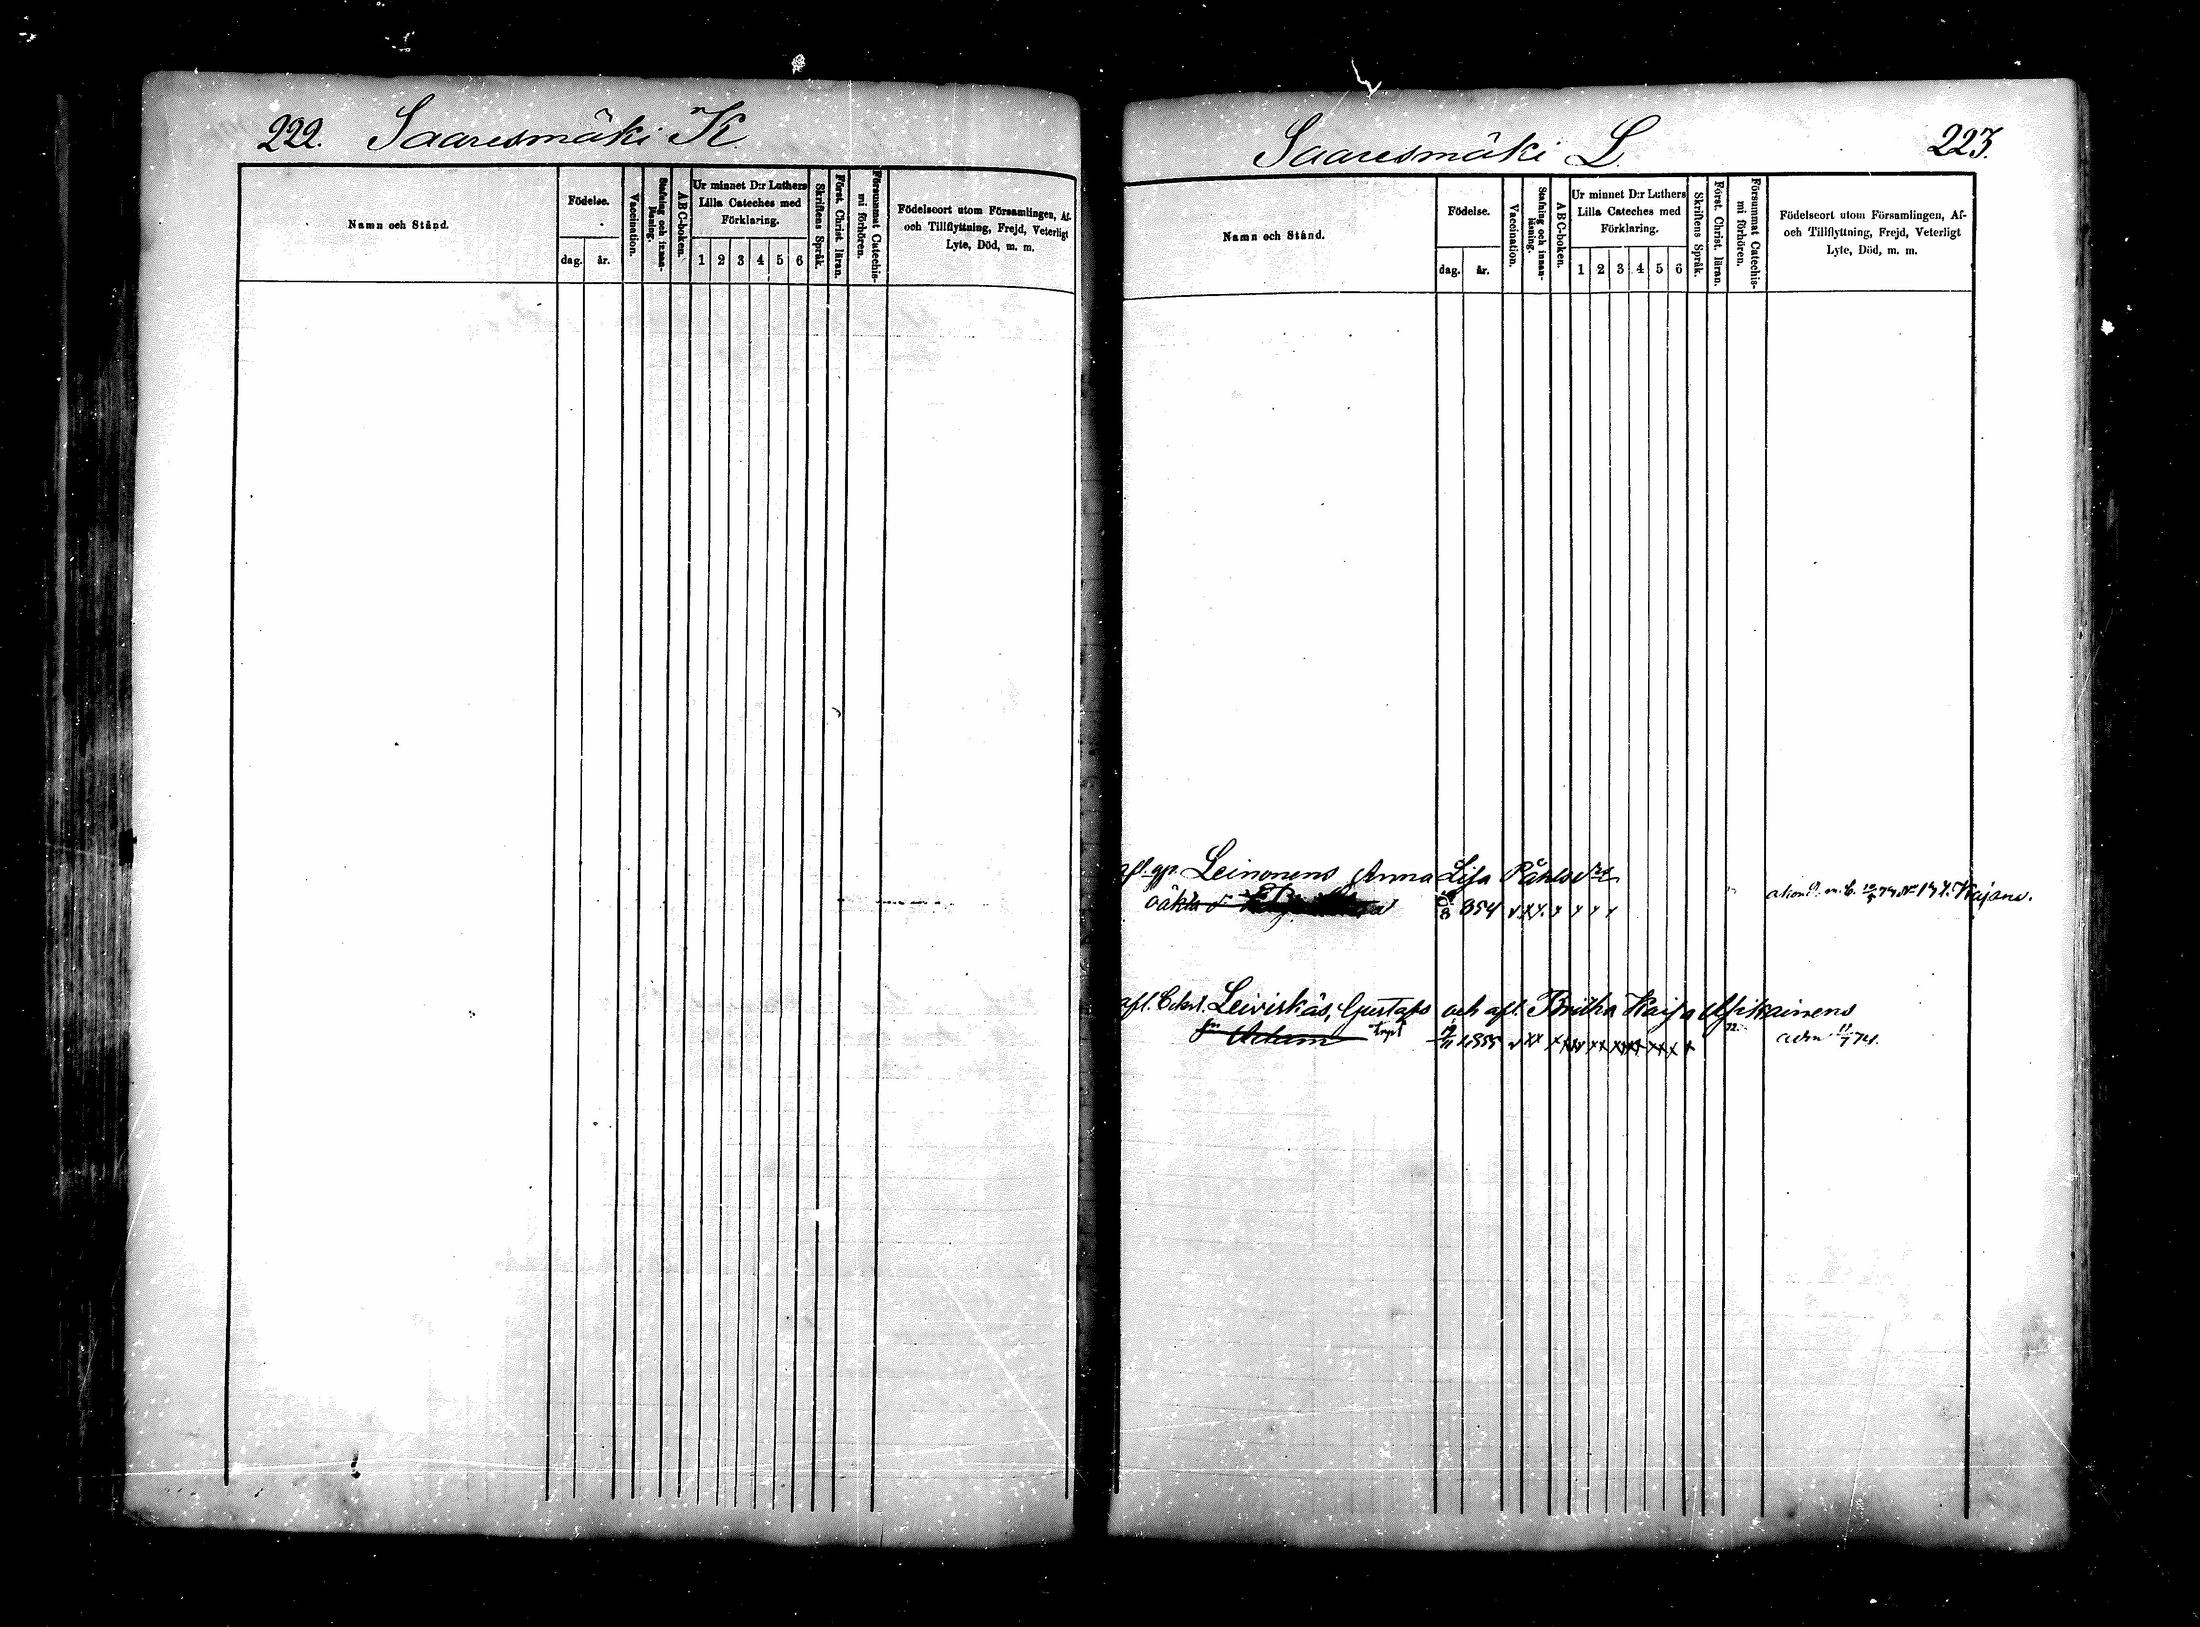 222. Saaresmäki K.
Namn och Stånd.
Födelse.
dag. år.
Vaccination.
Stafning och innan-läsning.
ABC-boken.
Ur minnet D:r Luthers
Lilla Cateches med
Förklaring.
1 2 3 4 5 6
Skriftens Språk.
Först. Christ. läran.
Försummat Catechis-
mi förhören.
Födelseort utom Församlingen, Af-
och Tillflyttning, Frejd, Veterligt
Lyte, Död, m. m.
Saaresmäki L. 223.
Namn och Stånd.
Födelse.
dag. år.
Vaccination.
Stafning och innan-läsning.
ABC-boken.
Ur minnet D:r Luthers
Lilla Cateches med
Förklaring.
1 2 3 4 5 6
Skriftens Språk.
Först. Christ. läran.
Försummat Catechis-
mi förhören.
Födelseort utom Församlingen, Af-
och Tillflyttning, Frejd, Veterligt
Lyte, Död, m. m.
afl. gp. Leinonens Anna Lisa Påhlsdr
oäkta 854 Kajana.
afl. Leiviskäs, Gustafs och afl. Britha Kaisa
Adam 1855 72. 74.